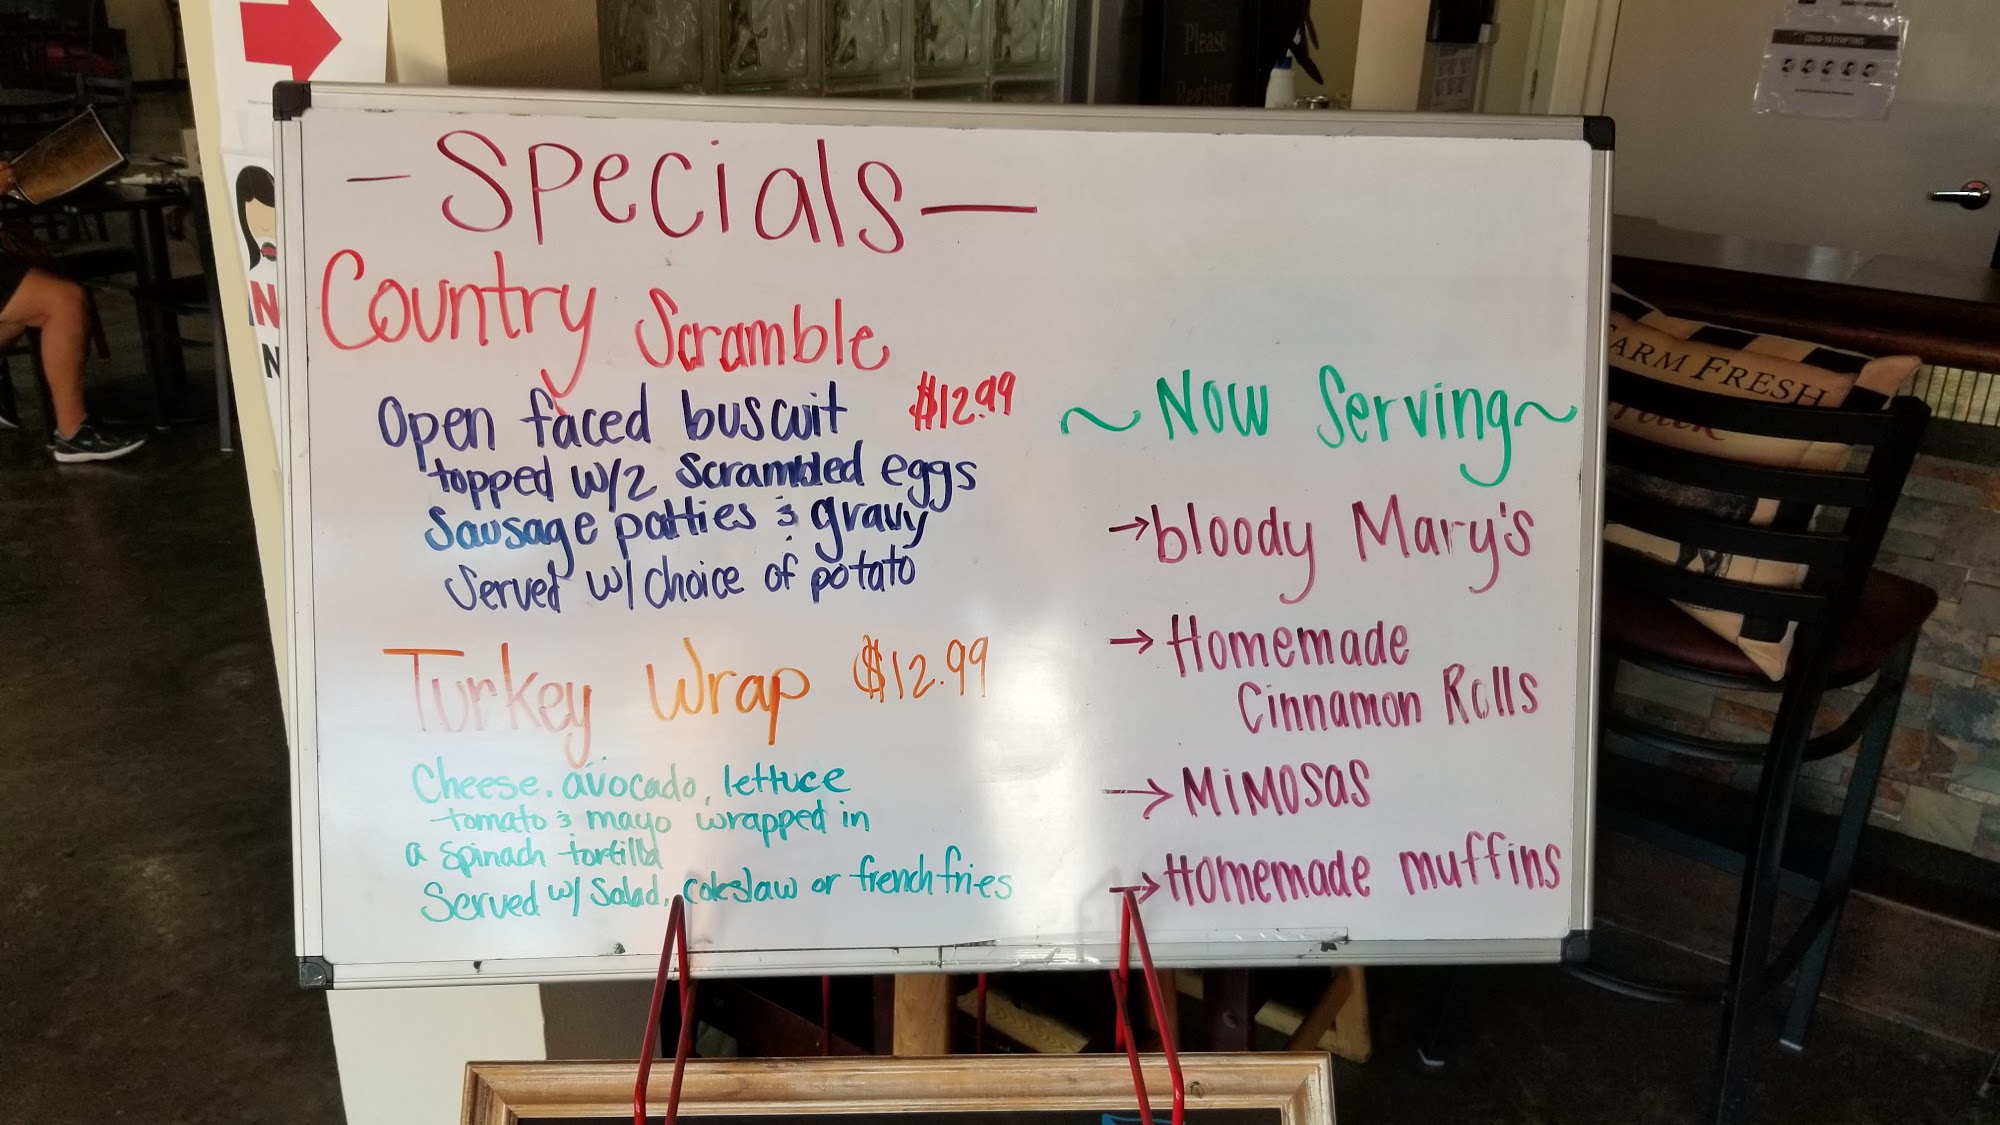 - Specials -
Country Scramble
$12.99
Open faced buscuit
topped w/2 scrambled eggs
Sausage patties & gravy
Served w/ choice of potato
Turkey Wrap $12.99
Cheese, avocado, lettuce
tomato & mayo wrapped in
a spinach tortilla
Served w/ Salad, coleslaw or french fries
~ Now Serving ~
→ bloody Mary's
→ Homemade
Cinnamon Rolls
→ Mimosas
→ Homemade muffins
Please
Register
COVID-19 SYMPTOMS
FARM FRESH